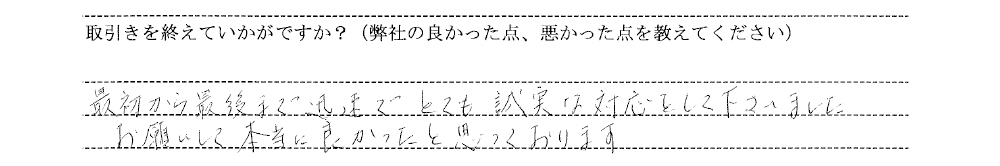 取引きを終えていかがですか？（弊社の良かった点、悪かった点を教えてください）
最初から最後まで迅速でとても誠実な対応をして下さいました
お願いして本当に良かったと思っております